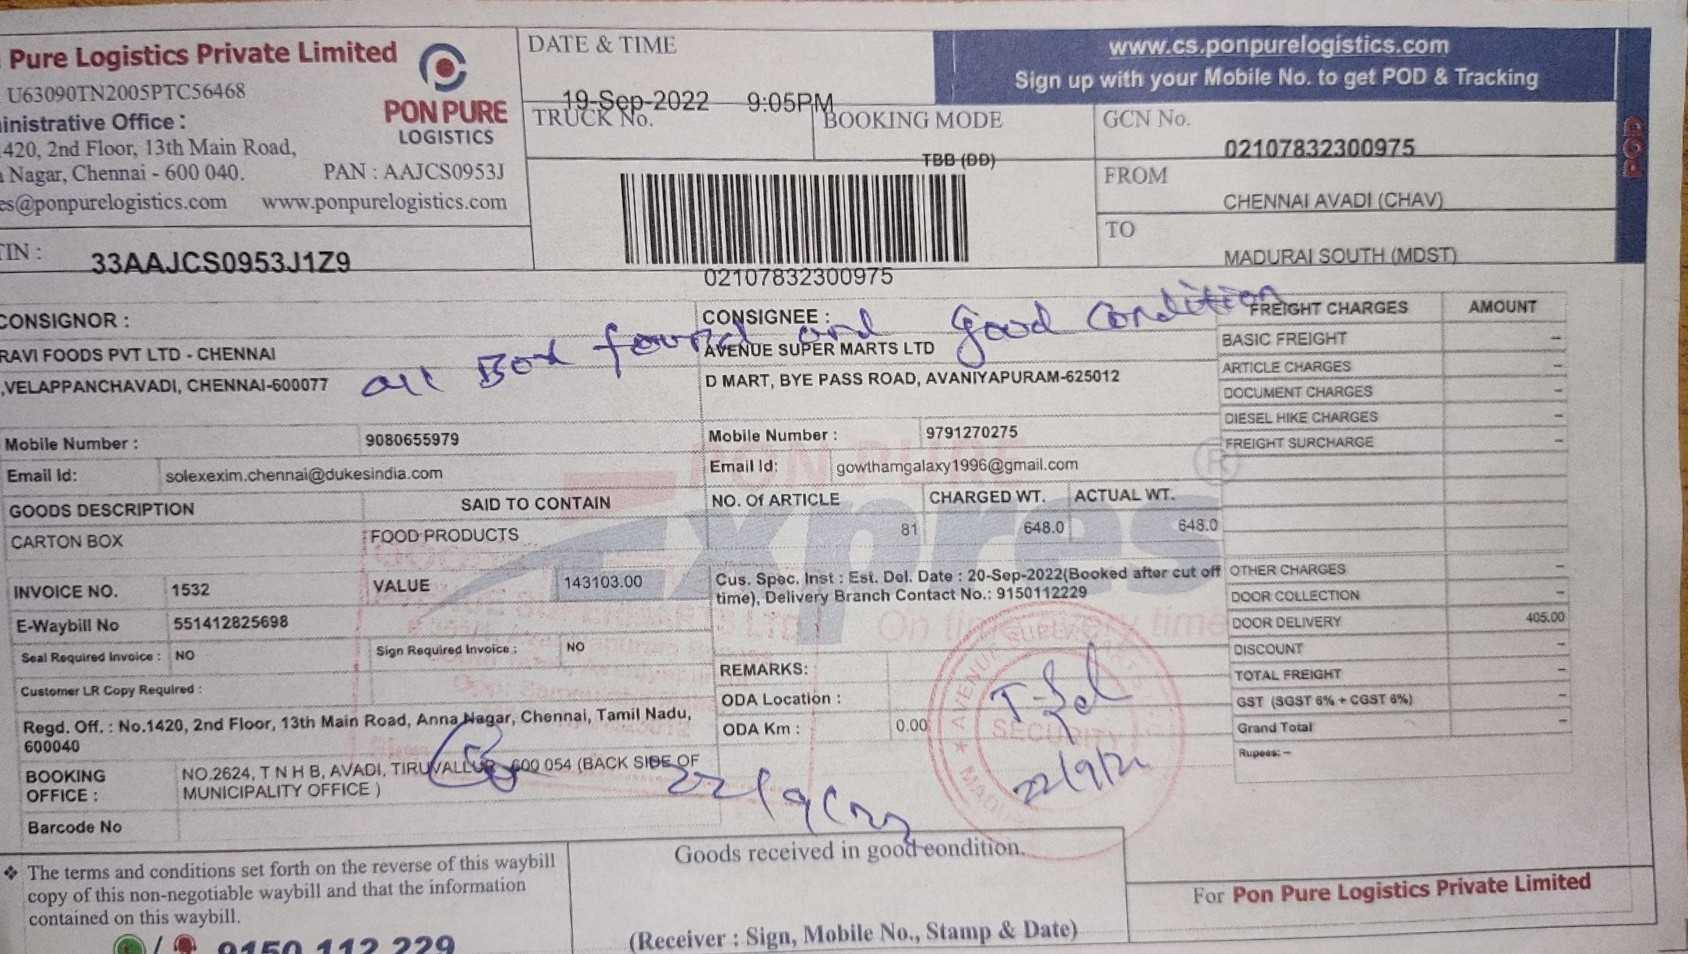 Pure Logistics Private Limited
U63090TN2005PTC56468
inistrative Office :
420, 2nd Floor, 13th Main Road,
Nagar, Chennai - 600 040.
PAN : AAJCS0953J
es@ponpurelogistics.com www.ponpurelogistics.com
PON PURE
LOGISTICS
TIN : 33AAJCS0953J1Z9
DATE & TIME
19-Sep-2022 9:05PM
TRUCK No.
BOOKING MODE
TBB (DD)
02107832300975
www.cs.ponpurelogistics.com
Sign up with your Mobile No. to get POD & Tracking
GCN No.
02107832300975
FROM
CHENNAI AVADI (CHAV)
TO
MADURAI SOUTH (MDST)
POD
CONSIGNOR :
RAVI FOODS PVT LTD - CHENNAI
,VELAPPANCHAVADI, CHENNAI-600077
Mobile Number : 9080655979
Email Id: solexexim.chennai@dukesindia.com
CONSIGNEE :
AVENUE SUPER MARTS LTD
D MART, BYE PASS ROAD, AVANIYAPURAM-625012
Mobile Number : 9791270275
Email Id: gowthamgalaxy1996@gmail.com
all Box found and good Condition
GOODS DESCRIPTION SAID TO CONTAIN NO. Of ARTICLE CHARGED WT. ACTUAL WT.
CARTON BOX FOOD PRODUCTS 81 648.0 648.0
INVOICE NO. 1532 VALUE 143103.00
E-Waybill No 551412825698
Seal Required Invoice : NO Sign Required Invoice : NO
Customer LR Copy Required :
Cus. Spec. Inst : Est. Del. Date : 20-Sep-2022(Booked after cut off
time), Delivery Branch Contact No.: 9150112229
REMARKS:
ODA Location :
ODA Km : 0.00
Regd. Off. : No.1420, 2nd Floor, 13th Main Road, Anna Nagar, Chennai, Tamil Nadu,
600040
BOOKING
OFFICE :
NO.2624, T N H B, AVADI, TIRUVALLUR 600 054 (BACK SIDE OF
MUNICIPALITY OFFICE )
Barcode No
FREIGHT CHARGES AMOUNT
BASIC FREIGHT –
ARTICLE CHARGES –
DOCUMENT CHARGES –
DIESEL HIKE CHARGES –
FREIGHT SURCHARGE –
OTHER CHARGES –
DOOR COLLECTION –
DOOR DELIVERY 405.00
DISCOUNT –
TOTAL FREIGHT –
GST (SGST 6% + CGST 6%) –
Grand Total –
Rupees: –
PON PURE
Expres
®
SECURITY
22/9/22
22/9/22
The terms and conditions set forth on the reverse of this waybill
copy of this non-negotiable waybill and that the information
contained on this waybill.
9150 112 229
Goods received in good condition.
(Receiver : Sign, Mobile No., Stamp & Date)
For Pon Pure Logistics Private Limited